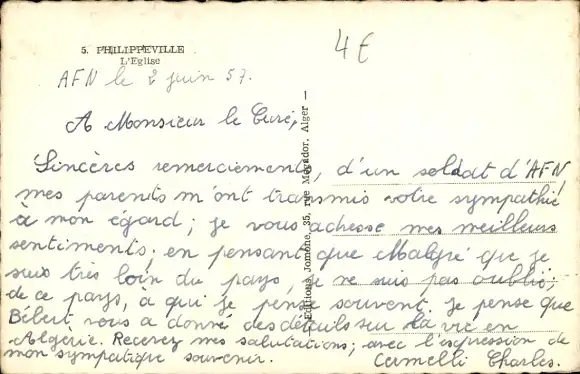 4€
5. PHILIPPEVILLE
L'Eglise
AFN le 2 juin 57.
A Monsieur le Curé,
Sincères remerciements, d'un soldat d'AFN
mes parents m'ont transmis votre sympathie
à mon égard ; je vous adresse mes meilleurs
sentiments, en pensant que Malgré que je
suis très loin du pays, je ne suis pas oublié,
de ce pays, à qui je pense souvent. Je pense que
vous a donné des détails sur la vie en
Algérie. Recevez mes salutations ; avec l'expression de
mon sympatique souvenir. Cermelli Charles.
Editions Jomone, 35, rue Mogador, Alger —